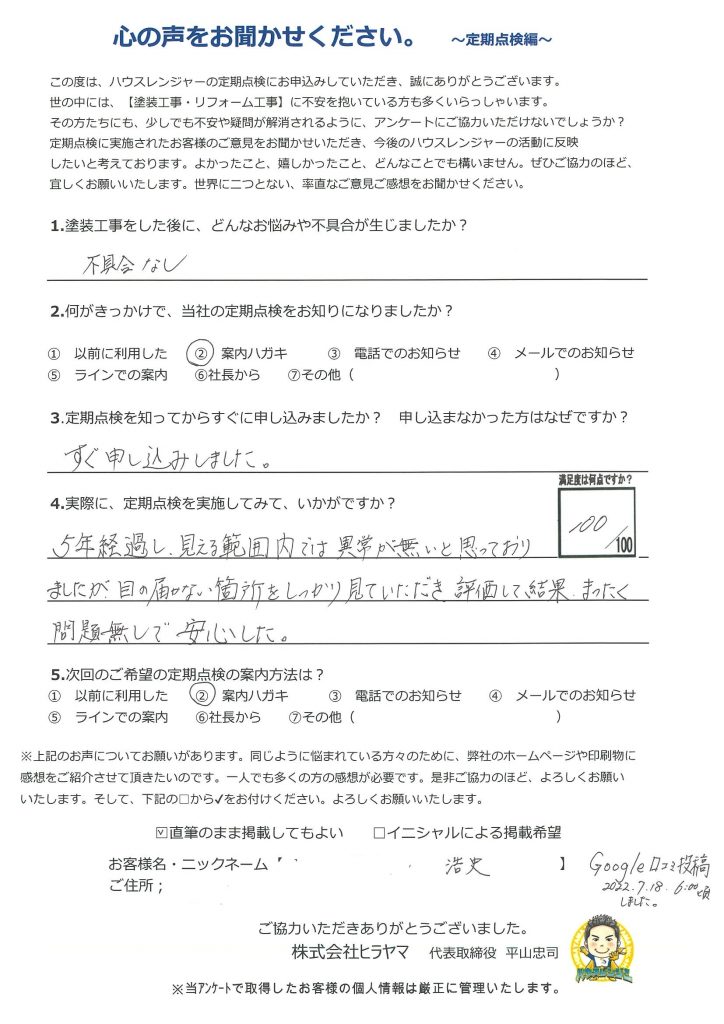 心の声をお聞かせください。　～定期点検編～
この度は、ハウスレンジャーの定期点検にお申込みしていただき、誠にありがとうございます。
世の中には、【塗装工事・リフォーム工事】に不安を抱いている方も多くいらっしゃいます。
その方たちにも、少しでも不安や疑問が解消されるように、アンケートにご協力いただけないでしょうか？
定期点検に実施されたお客様のご意見をお聞かせいただき、今後のハウスレンジャーの活動に反映
したいと考えております。よかったこと、嬉しかったこと、どんなことでも構いません。ぜひご協力のほど、
宜しくお願いいたします。世界に二つとない、率直なご意見ご感想をお聞かせください。
1.塗装工事をした後に、どんなお悩みや不具合が生じましたか？
不具合なし
2.何がきっかけで、当社の定期点検をお知りになりましたか？
①　以前に利用した　②　案内ハガキ　③　電話でのお知らせ　④　メールでのお知らせ
⑤　ラインでの案内　⑥社長から　⑦その他（　）
3.定期点検を知ってからすぐに申し込みましたか？　申し込まなかった方はなぜですか？
すぐ申し込みしました。
満足度は何点ですか？
4.実際に、定期点検を実施してみて、いかがですか？
100 /100
5年経過し、見える範囲内では異常が無いと思っており
ましたが、目の届かない箇所をしっかり見ていただき、評価して結果、まったく
問題無しで安心した。
5.次回のご希望の定期点検の案内方法は？
①　以前に利用した　②　案内ハガキ　③　電話でのお知らせ　④　メールでのお知らせ
⑤　ラインでの案内　⑥社長から　⑦その他（　）
※上記のお声についてお願いがあります。同じように悩まれている方々のために、弊社のホームページや印刷物に
感想をご紹介させて頂きたいのです。一人でも多くの方の感想が必要です。是非ご協力のほど、よろしくお願い
いたします。そして、下記の□から✓をお付けください。よろしくお願いいたします。
☑直筆のまま掲載してもよい　□イニシャルによる掲載希望
お客様名・ニックネーム【　浩史　】 Google口コミ投稿
2022.7.18. 6:00頃
しました。
ご住所；
ご協力いただきありがとうございました。
株式会社ヒラヤマ　代表取締役　平山忠司
※当アンケートで取得したお客様の個人情報は厳正に管理いたします。